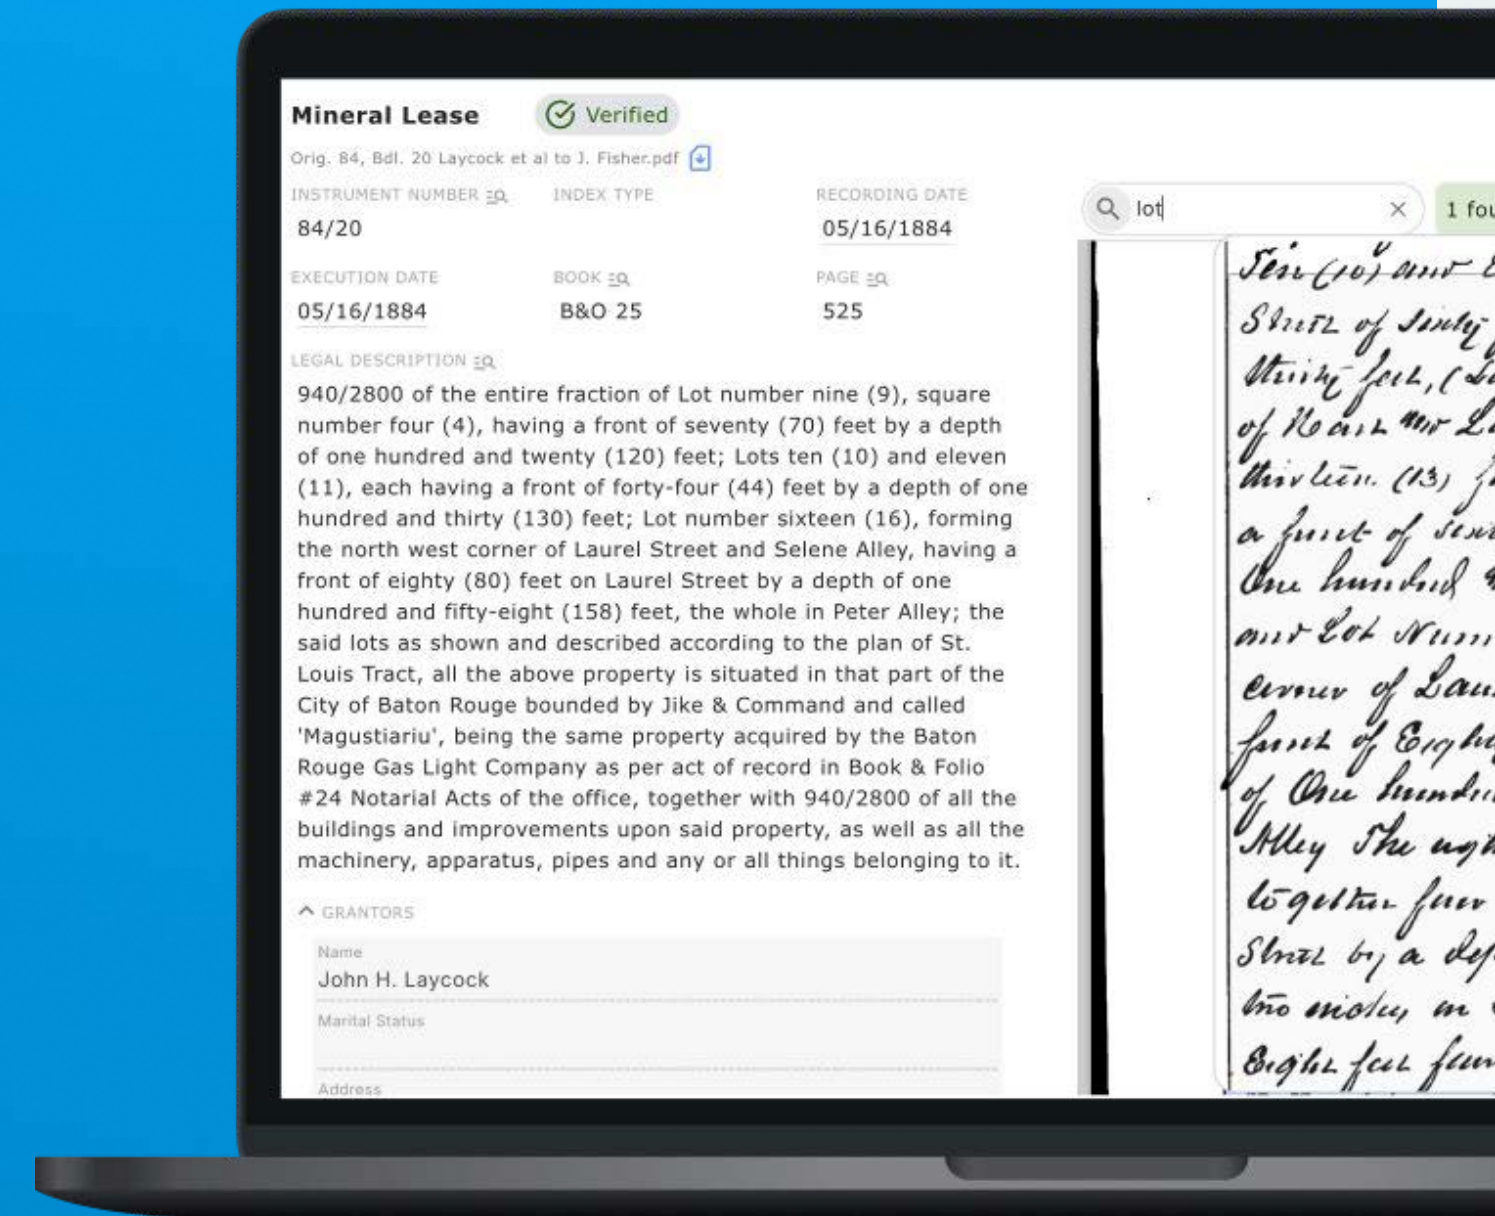 Mineral Lease
Verified
Orig. 84, Bdl. 20 Laycock et al to J. Fisher.pdf
INSTRUMENT NUMBER
INDEX TYPE
RECORDING DATE
84/20
05/16/1884
EXECUTION DATE
BOOK
PAGE
05/16/1884
B&O 25
525
LEGAL DESCRIPTION
940/2800 of the entire fraction of Lot number nine (9), square
number four (4), having a front of seventy (70) feet by a depth
of one hundred and twenty (120) feet; Lots ten (10) and eleven
(11), each having a front of forty-four (44) feet by a depth of one
hundred and thirty (130) feet; Lot number sixteen (16), forming
the north west corner of Laurel Street and Selene Alley, having a
front of eighty (80) feet on Laurel Street by a depth of one
hundred and fifty-eight (158) feet, the whole in Peter Alley; the
said lots as shown and described according to the plan of St.
Louis Tract, all the above property is situated in that part of the
City of Baton Rouge bounded by Jike & Command and called
'Magustiariu', being the same property acquired by the Baton
Rouge Gas Light Company as per act of record in Book & Folio
#24 Notarial Acts of the office, together with 940/2800 of all the
buildings and improvements upon said property, as well as all the
machinery, apparatus, pipes and any or all things belonging to it.
GRANTORS
Name
John H. Laycock
Marital Status
Address
lot
1 fou
Ten (10) and
of
of
thirteen (13)
a front of
One hundred
and Lot Num
corner of Lau
front of Eigh
of One hundre
Alley The
together four
Street by a
two in
Eight feet